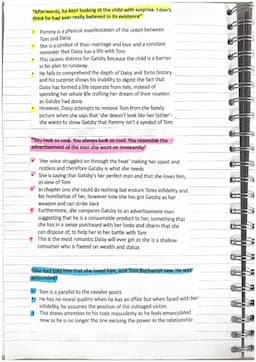 "Afterwards, he kept looking at the child with surprise. I don't
think he had ever really believed in its existence"
Pammy is a physical manifestation of the union between
Tom and Daisy
She is a symbol of their marriage and love and a constant
reminder that Daisy has a life with Tom
This causes distress for Gatsby because the child is a barrier
in his plan to runaway
He fails to comprehend the depth of Daisy and Toms history
and his surprise shows his inability to digest the fact that
Daisy has formed a life separate from him, instead of
spending her whole life crafting her dream of their reunion
as Gatsby had done
However, Daisy attempts to remove Tom from the family
picture when she says that 'she doesn't look like her father' -
she wants to show Gatsby that Pammy isn't a symbol of Tom
"You look so cool. You always look so cool. You resemble the
advertisement of the man she went on innocently"
'Her voice struggled on through the heat' making her upset and
restless and therefore Gatsby is what she needs
She is saying that Gatsby's her perfect man and that she loves him,
in view of Tom
In chapter one she could do nothing but endure Toms infidelity and
his humiliation of her, however now she has Gatsby as her
weapon and can strike back
Furthermore, she compares Gatsby to an advertisement man
suggesting that he is a consumable product to her, something that
she has in a sense purchased with her looks and charm that she
can dispose of, to help her in her battle with Tom
This is the most romantic Daisy will ever get as she is a shallow
consumer who is fixated on wealth and status
"She had told him that she loved him, and Tom Buchanan saw. He was
astounded"
Tom is a parallel to the cavalier poets
He has no moral qualms when he has an affair but when faced with her
infidelity, he assumes the position of the outraged victim
This draws attention to his toxic masculinity as he feels emasculated
now as he is no longer the one exerting the power in the relationship